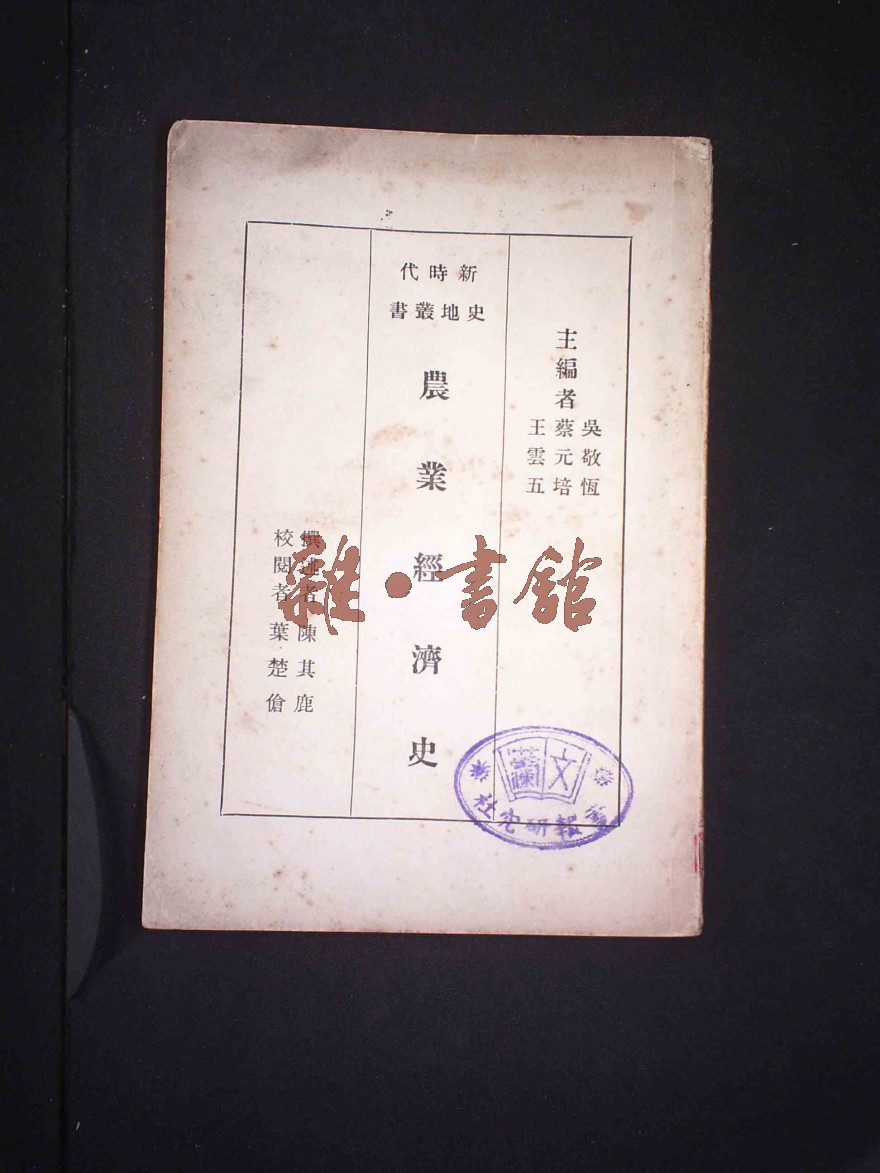 主編者
吳敬恆
蔡元培
王雲五
新時代
史地叢書
農業經濟史
撰述者 陳其鹿
校閱者 葉楚傖
雜·書館
文瀾
學報研究社